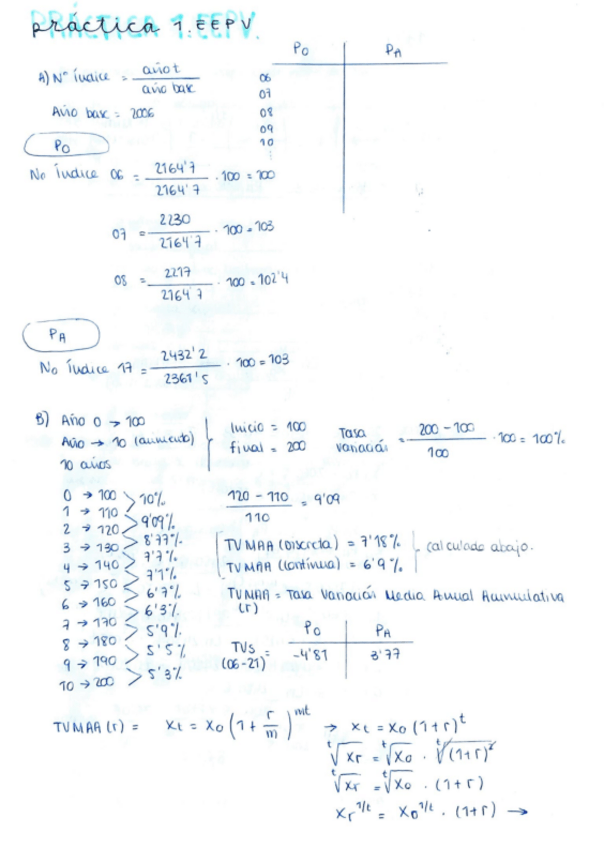 práctica 1. EEPV
PRÁCTICA 1. EEPV.
P0 PA
A) Nº índice = año t / año base
06
07
Año base = 2006
08
09
10
P0
No índice 06 = 2164'7 / 2164'7 · 100 = 100
07 = 2230 / 2164'7 · 100 = 103
08 = 2217 / 2164'7 · 100 = 102'4
PA
No índice 17 = 2432'2 / 2361'5 · 100 = 103
B) Año 0 → 100
Año → 10 (aumento)
10 años
Inicio = 100
final = 200
Tasa variación = 200 - 100 / 100 · 100 = 100%
0 → 100
10%
1 → 110
9'09%
2 → 120
8'77%
3 → 130
7'7%
4 → 140
7'1%
5 → 150
6'7%
6 → 160
6'3%
7 → 170
5'9%
8 → 180
5'5%
9 → 190
5'3%
10 → 200
120 - 110 / 110 = 9'09
TVMAA (Discreta) = 7'18%
TVMAA (continua) = 6'9%
calculado abajo.
TVMAA = Tasa Variación Media Anual Acumulativa
(r)
P0 PA
TVs = -4'81 3'77
(06-21)
TVMAA (r) = xt = x0 (1 + r/m)^mt → xt = x0 (1+r)^t
t√xr = t√x0 · t√(1+r)^t
t√xr = t√x0 · (1+r)
xr^1/t = x0^1/t · (1+r) →